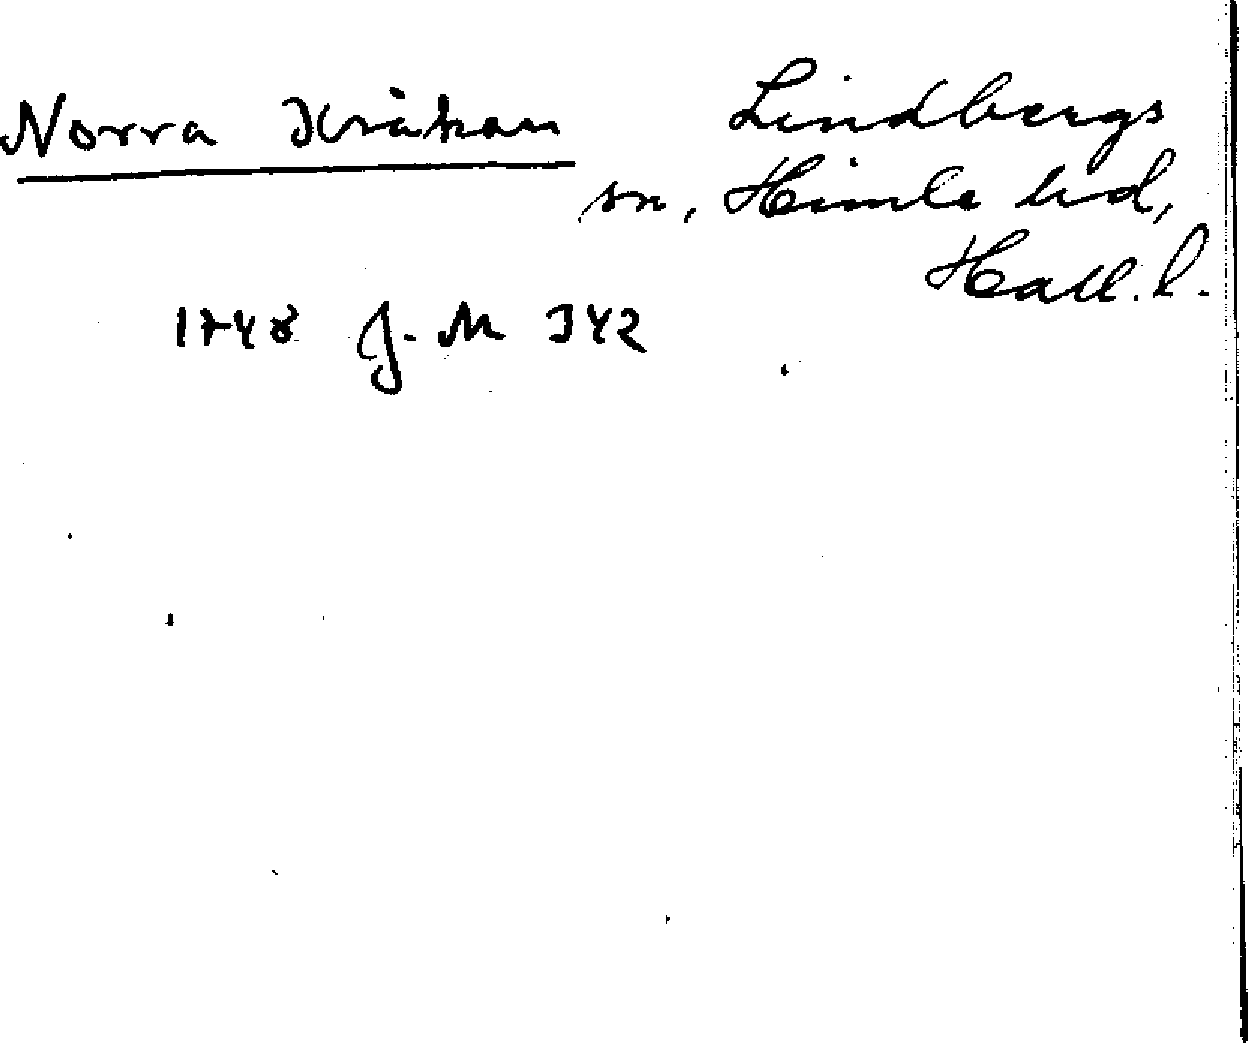 Norra Kråkan
Lindbergs
sn, Himle hd,
Hall. l.
1748 J. M 342